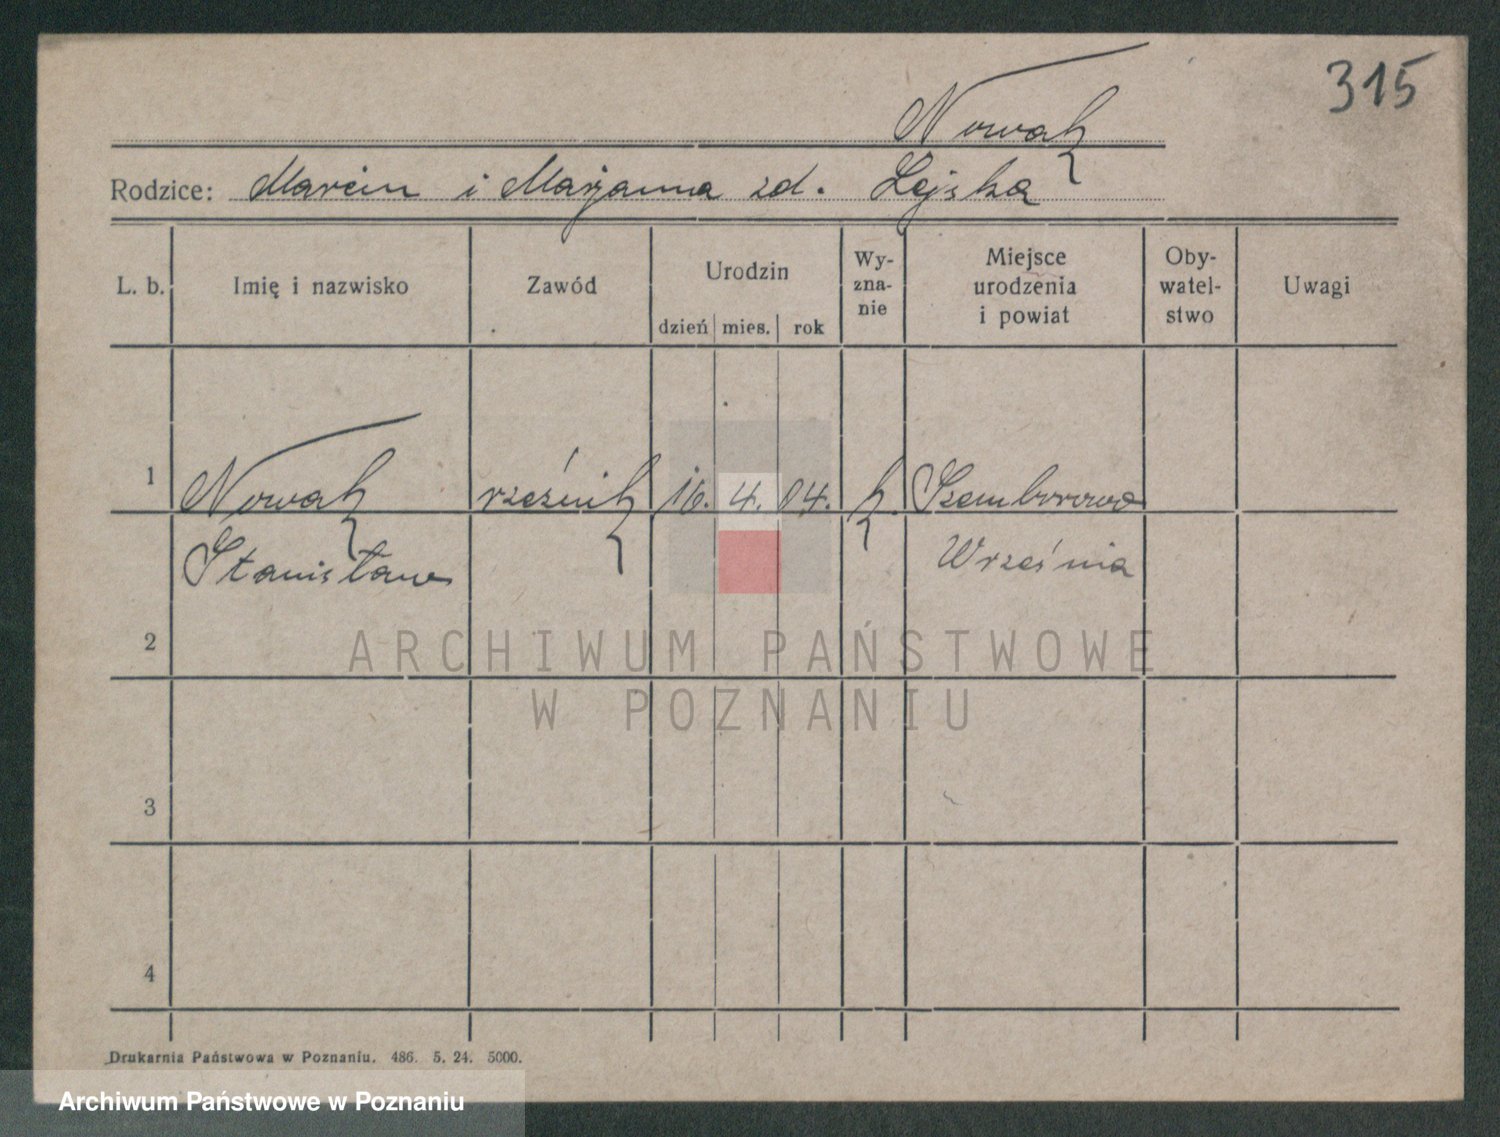 315
Nowak
Rodzice: Marcin i Marjanna zd. Lejska
L. b. Imię i nazwisko Zawód Urodzin dzień mies. rok Wy-zna-nie Miejsce urodzenia i powiat Oby-watel-stwo Uwagi
1 Nowak rzeźnik 16. 4. 04. k. Szemborowo
Stanisław Września
2
ARCHIWUM PAŃSTWOWE
W POZNANIU
3
4
Drukarnia Państwowa w Poznaniu. 486. 5. 24. 5000.
Archiwum Państwowe w Poznaniu